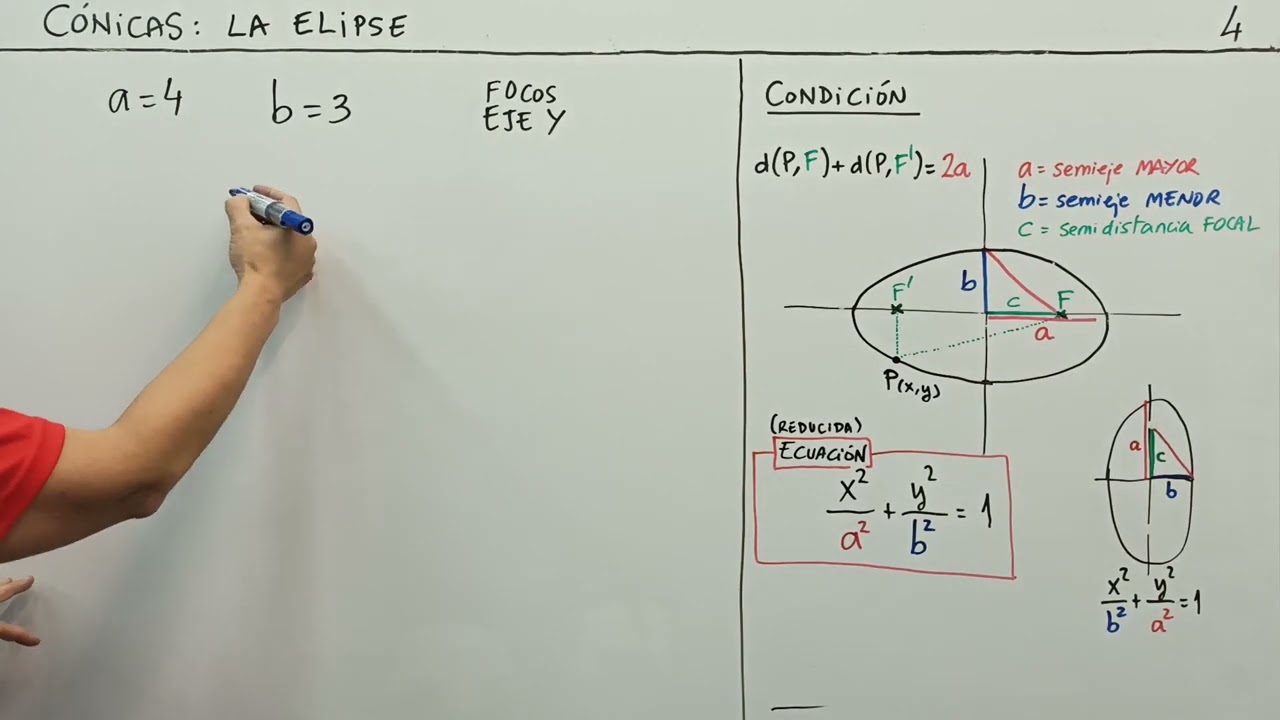 CÓNICAS: LA ELIPSE
4
a=4 b=3 FOCOS
EJE Y
CONDICIÓN
d(P,F)+d(P,F')=2a
a= semieje MAYOR
b= semieje MENOR
c = semidistancia FOCAL
b
F'
c
F
a
P(x,y)
(REDUCIDA)
ECUACIÓN
x²/a² + y²/b² = 1
a
c
b
x²/b² + y²/a² = 1